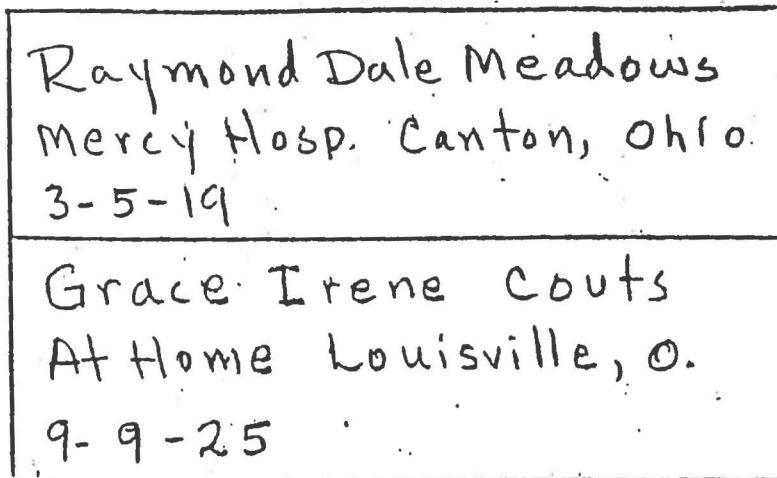 Raymond Dale Meadows
Mercy Hosp. Canton, Ohio.
3-5-19
Grace Irene Couts
At Home Louisville, O.
9-9-25